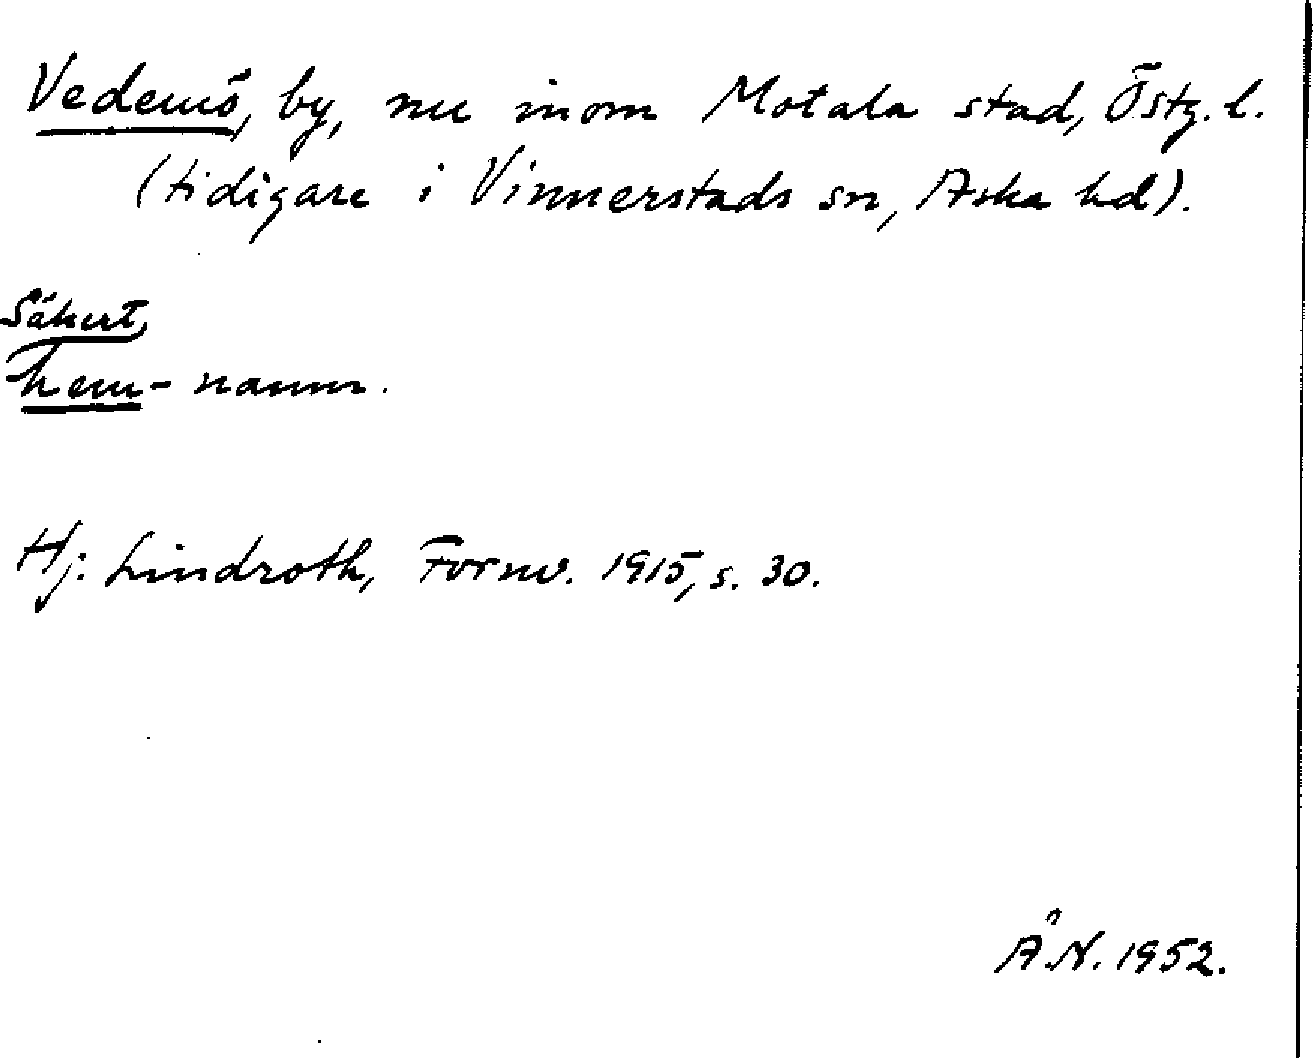 Vedemö, by, nu inom Motala stad, Östg. l.
(tidigare i Vinnerstads sn, Aska hd).
Säkert
hem- namn.
Hj. Lindroth, Fornv. 1915, s. 30.
Å.N. 1952.